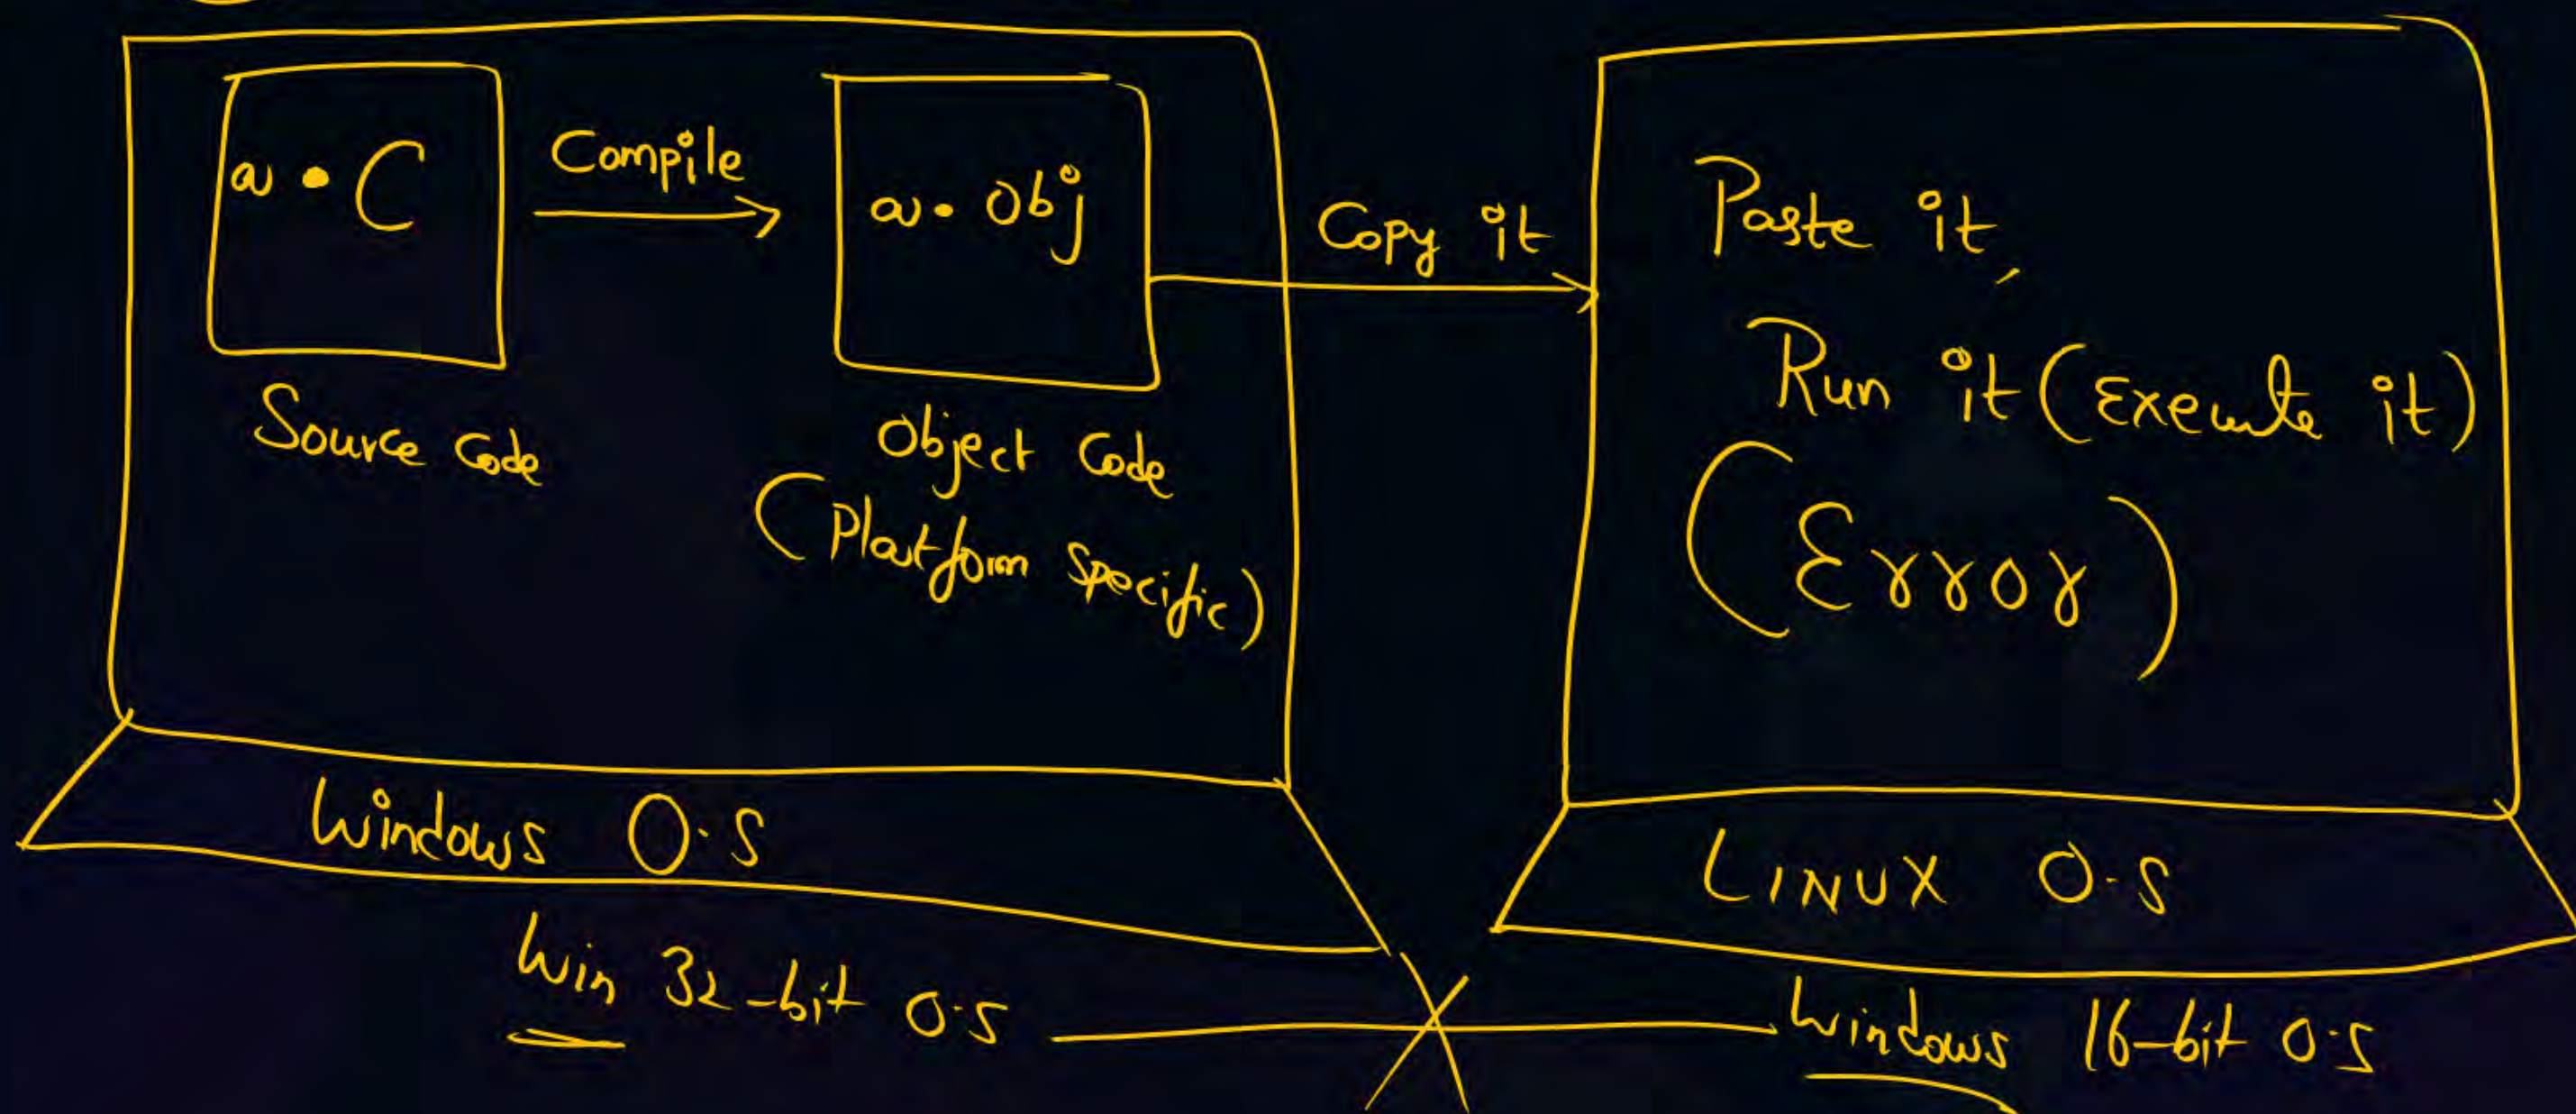 a.C
Compile
a.obj
Source Code
Object Code
(Platform Specific)
Copy it
Paste it,
Run it (Execute it)
(Error)
Windows O.S
LINUX O.S
Win 32-bit O.S
Windows 16-bit O.S